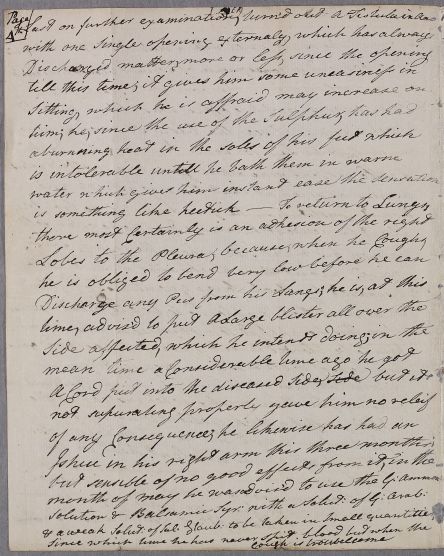 Page
4th
but on further examination, turned out a Fistula in ano
with one single opening externaly, which has always
Discharged matter, more or less, since the opening
till this time; it gives him some uneasiness in
sitting, which he is affraid may increase on
him; he, since the use of the Sulphur, has had
a burning heat in the soles of his feet which
is intolerable untill he bath them in warm
water which gives him instand ease the sensation
is something like — To return to Lungs,
there most Certainly is an adhesion of the right
Lobes to the Pleura, because, when he Coughs,
he is obliged to bend very low before he can
Discharge any Pus from his Lungs; he is, at this
time, advised to put a Large blister all over the
Side affected, which he intends doing; in the
mean time a Considerable time ago he got
A Cord put into the diseased side, side but it
not supurating properly gave him no relief
of any Consequence; he likewise has had an
Ishue in his right arm this three months
but sensible of no good effects from it, in the
month of may he was advised to use the G: ammon:
Solution & Balsamic Syr: with a Solut: of G: arab:
& a weak Solut: of Sal: Glaub: to be taken in Small quantities
Since which time he has never spit blood but when the
Cough is troublesome